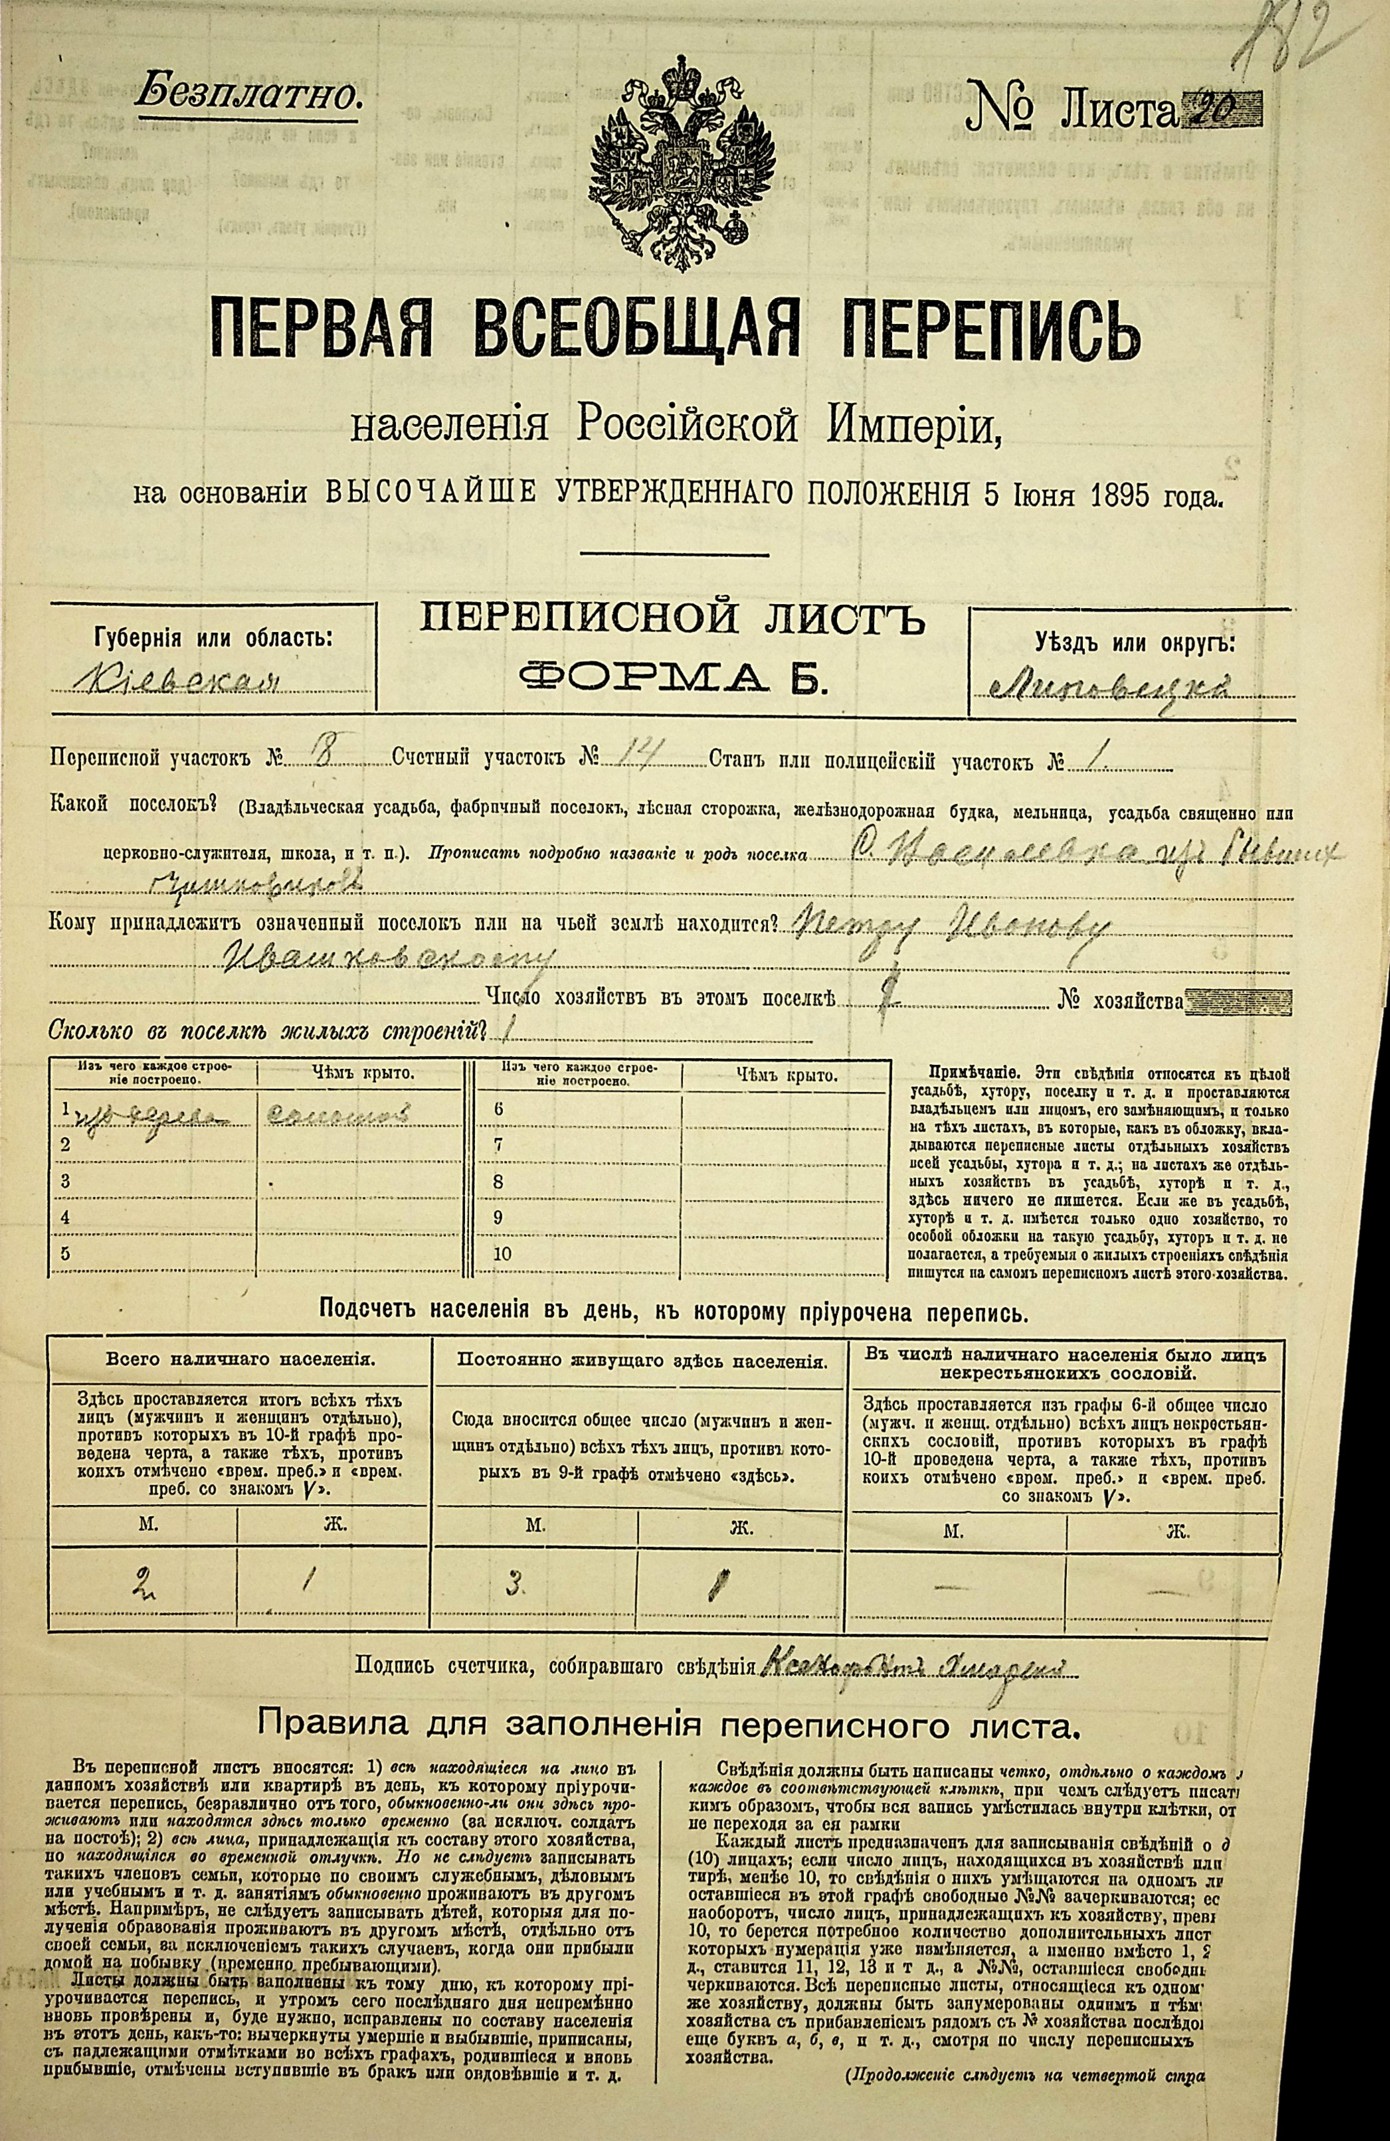 182
Безплатно.
№ Листа 20
ПЕРВАЯ ВСЕОБЩАЯ ПЕРЕПИСЬ
населенія Россійской Имперіи,
на основаніи ВЫСОЧАЙШЕ УТВЕРЖДЕННАГО ПОЛОЖЕНІЯ 5 Іюня 1895 года.
Губернія или область:
Кіевская
ПЕРЕПИСНОЙ ЛИСТЪ
ФОРМА Б.
Уѣздъ или округъ:
Липовецкій
Переписной участокъ № 8 Счетный участокъ № 14 Станъ или полицейскій участокъ № 1.
Какой поселокъ? (Владѣльческая усадьба, фабричный поселокъ, лѣсная сторожка, желѣзнодорожная будка, мельница, усадьба священно или
церковно-служителя, школа, и т. п.). Прописать подробно названіе и родъ поселка С. изъ бывших
чиншовиков
Кому принадлежитъ означенный поселокъ или на чьей землѣ находится? Петру
Ивашковскому
Число хозяйствъ въ этомъ поселкѣ № хозяйства
Сколько въ поселкѣ жилыхъ строеній? 1
Изъ чего каждое строе-
ніе построено.
Чѣмъ крыто.
Изъ чего каждое строе-
ніе построено.
Чѣмъ крыто.
1 изъ дерева соломой 6
2 7
3 8
4 9
5 10
Примѣчаніе. Эти свѣдѣнія относятся къ цѣлой
усадьбѣ, хутору, поселку и т. д. и проставляются
владѣльцемъ или лицомъ, его замѣняющимъ, и только
на тѣхъ листахъ, въ которые, какъ въ обложку, вкла-
дываются переписные листы отдѣльныхъ хозяйствъ
всей усадьбы, хутора и т. д.; на листахъ же отдѣль-
ныхъ хозяйствъ въ усадьбѣ, хуторѣ и т. д.,
здѣсь ничего не пишется. Если же въ усадьбѣ,
хуторѣ и т. д. имѣется только одно хозяйство, то
особой обложки на такую усадьбу, хуторъ и т. д. не
полагается, а требуемыя о жилыхъ строеніяхъ свѣдѣнія
пишутся на самомъ переписномъ листѣ этого хозяйства.
Подсчетъ населенія въ день, къ которому пріурочена перепись.
Всего наличнаго населенія.
Здѣсь проставляется итогъ всѣхъ тѣхъ
лицъ (мужчинъ и женщинъ отдѣльно),
противъ которыхъ въ 10-й графѣ про-
ведена черта, а также тѣхъ, противъ
коихъ отмѣчено «врем. преб.» и «врем.
преб. со знакомъ V».
М. Ж.
2 1
Постоянно живущаго здѣсь населенія.
Сюда вносится общее число (мужчинъ и жен-
щинъ отдѣльно) всѣхъ тѣхъ лицъ, противъ кото-
рыхъ въ 9-й графѣ отмѣчено «здѣсь».
М. Ж.
3. 1
Въ числѣ наличнаго населенія было лицъ
некрестьянскихъ сословій.
Здѣсь проставляется изъ графы 6-й общее число
(мужч. и женщ. отдѣльно) всѣхъ лицъ некрестьян-
скихъ сословій, противъ которыхъ въ графѣ
10-й проведена черта, а также тѣхъ, противъ
коихъ отмѣчено «врем. преб.» и «врем. преб.
со знакомъ V».
М. Ж.
— —
Подпись счетчика, собиравшаго свѣдѣнія
Правила для заполненія переписного листа.
Въ переписной листъ вносятся: 1) всѣ находящіеся на лицо въ
данномъ хозяйствѣ или квартирѣ въ день, къ которому пріурочи-
вается перепись, безразлично отъ того, обыкновенно-ли они здѣсь про-
живаютъ или находятся здѣсь только временно (за исключ. солдатъ
на постоѣ); 2) всѣ лица, принадлежащія къ составу этого хозяйства,
но находящіяся во временной отлучкѣ. Но не слѣдуетъ записывать
такихъ членовъ семьи, которые по своимъ служебнымъ, дѣловымъ
или учебнымъ и т. д. занятіямъ обыкновенно проживаютъ въ другомъ
мѣстѣ. Напримѣръ, не слѣдуетъ записывать дѣтей, которыя для по-
лученія образованія проживаютъ въ другомъ мѣстѣ, отдѣльно отъ
своей семьи, за исключеніемъ такихъ случаевъ, когда они прибыли
домой на побывку (временно пребывающими).
Листы должны быть заполнены къ тому дню, къ которому прі-
урочивается перепись, и утромъ сего послѣдняго дня непремѣнно
вновь провѣрены и, буде нужно, исправлены по составу населенія
въ этотъ день, какъ-то: вычеркнуты умершіе и выбывшіе, приписаны,
съ надлежащими отмѣтками во всѣхъ графахъ, родившіеся и вновь
прибывшіе, отмѣчены вступившіе въ бракъ или овдовѣвшіе и т. д.
Свѣдѣнія должны быть написаны четко, отдѣльно о каждомъ
каждое въ соотвѣтствующей клѣткѣ, при чемъ слѣдуетъ писат
кимъ образомъ, чтобы вся запись умѣстилась внутри клѣтки, от
не переходя за ея рамки
Каждый листъ предназначенъ для записыванія свѣдѣній о д
(10) лицахъ; если число лицъ, находящихся въ хозяйствѣ или
тирѣ, менѣе 10, то свѣдѣнія о нихъ умѣщаются на одномъ ли
оставшіеся въ этой графѣ свободные №№ зачеркиваются; ес
наоборотъ, число лицъ, принадлежащихъ къ хозяйству, превы
10, то берется потребное количество дополнительныхъ лист
которыхъ нумерація уже измѣняется, а именно вмѣсто 1, 2
д., ставится 11, 12, 13 и т д., а №№, оставшіеся свободны
черкиваются. Всѣ переписные листы, относящіеся къ одном
же хозяйству, должны быть занумерованы однимъ и тѣм
хозяйства съ прибавленіемъ рядомъ съ № хозяйства послѣдо
еще буквъ а, б, в, и т. д., смотря по числу переписныхъ
хозяйства.
(Продолженіе слѣдуетъ на четвертой стра